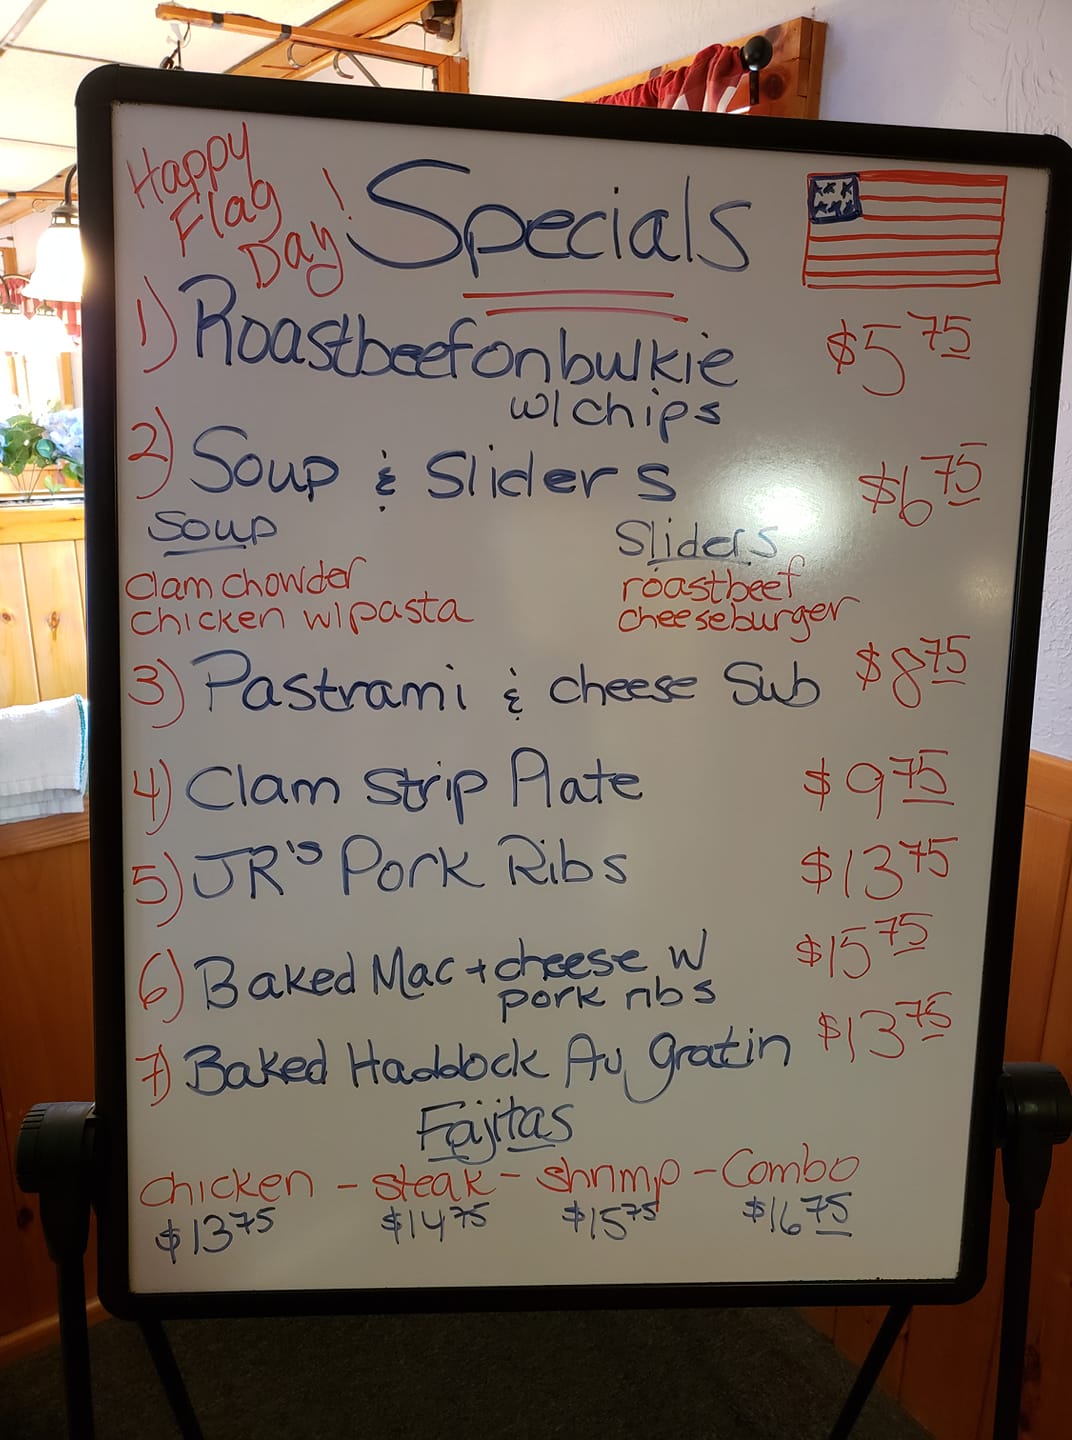 Happy
Flag
Day!
Specials
1) Roastbeef on bulkie $5 75
w/chips
2) Soup & Sliders $6 75
Soup Sliders
Clam chowder roastbeef
chicken w/pasta cheeseburger
3) Pastrami & cheese Sub $8 75
4) Clam Strip Plate $9 75
5) JR's Pork Ribs $13 75
6) Baked Mac + cheese w $15 75
pork ribs
7) Baked Haddock Au gratin $13 75
Fajitas
chicken - steak - shrimp - Combo
$13 75 $14 75 $15 75 $16 75